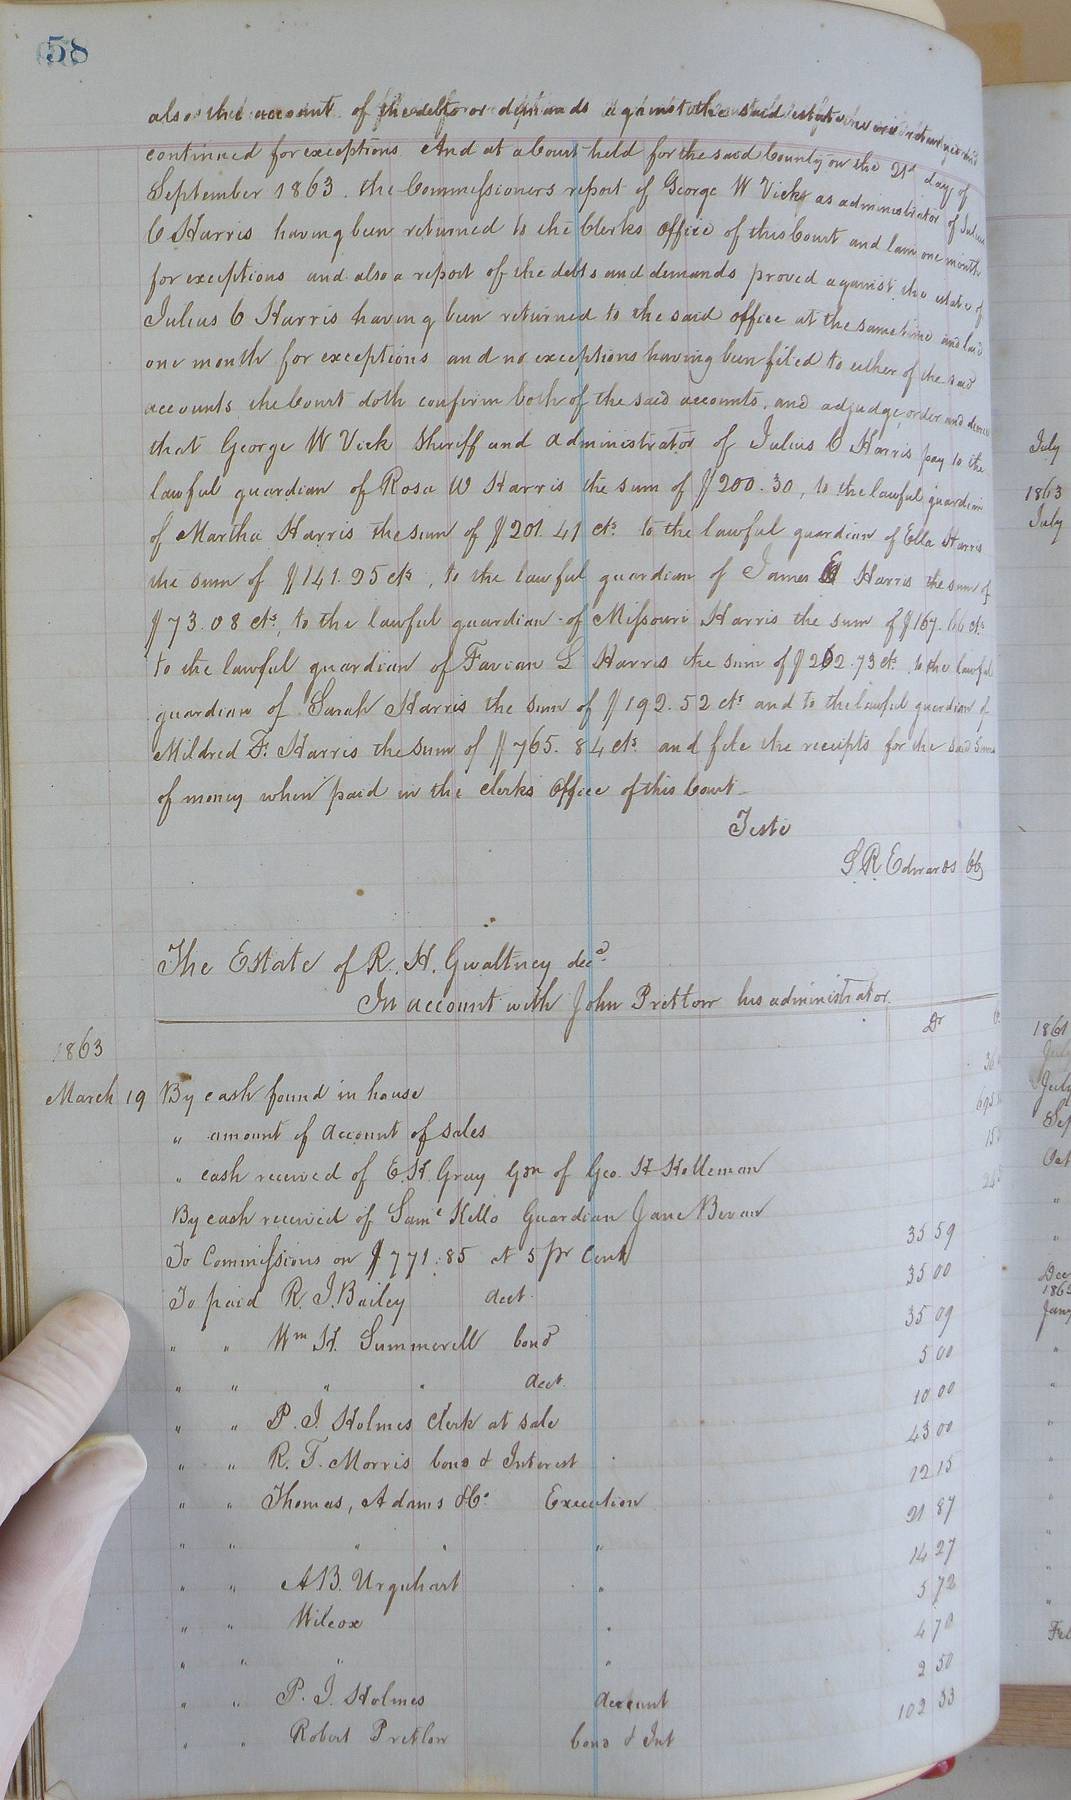 58
also the account of the debts or demands against the said estate
continued for exceptions And at a Court held for the said County on the 21st day of
September 1863. the Commissioners report of George W Vick as administrator of Julius
C Harris having been returned to the Clerks office of this Court and lain one month
for exceptions and also a report of the debts and demands proved against the estate of
Julius C Harris having been returned to the said office at the same time and laid
one month for exceptions and no exceptions having been filed to either of the said
accounts the Court doth confirm both of the said accounts, and adjudge, order and decree
that George W Vick Sheriff and administrator of Julius C Harris pay to the
lawful guardian of Rosa W Harris the sum of $200.30, to the lawful guardian
of Martha Harris the sum of $201.41 cts to the lawful guardian of Ella Harris
the sum of $141.25 cts, to the lawful guardian of James Harris the sum of
$73.08 cts, to the lawful guardian of Missouri Harris the sum of $167.66 cts
to the lawful guardian of Favian L Harris the sum of $202.73 cts to the lawful
guardian of Sarah Harris the sum of $192.52 cts and to the lawful guardian of
Mildred F. Harris the sum of $765.84 cts and file the receipts for the said sums
of money when paid in the clerks office of this Court_
Teste
S. R. Edwards CC
The Estate of R. H. Gwaltney decd
In account with John Pretlow his administrator
Dr
1863
March 19 By cash found in house
" amount of account of sales
" cash received of E. H. Gray Gdn of Geo. H Holleman
By cash received of Saml Kello Guardian Jane Bevan
To Commissions on $771.85 at 5 pr Cent 35 59
To paid R. J. Bailey acct. 35 00
" " Wm H. Summerell bond 35 09
" " " " acct. 5 00
" " P. J. Holmes Clerk at sale 10 00
" " R. T. Morris bond & Interest 43 00
" " Thomas, Adams & Co Execution 12 15
" " " " " 21 87
" " A B. Urquhart " 14 27
" " Wilcox " 5 72
" " " " 4 70
" " P. J. Holmes account 2 50
" " Robert Pretlow bond & Int 102 33
July
1863
July
1861
July
Sep
Oct
"
"
Dec
Jany
"
"
"
"
"
"
"
"